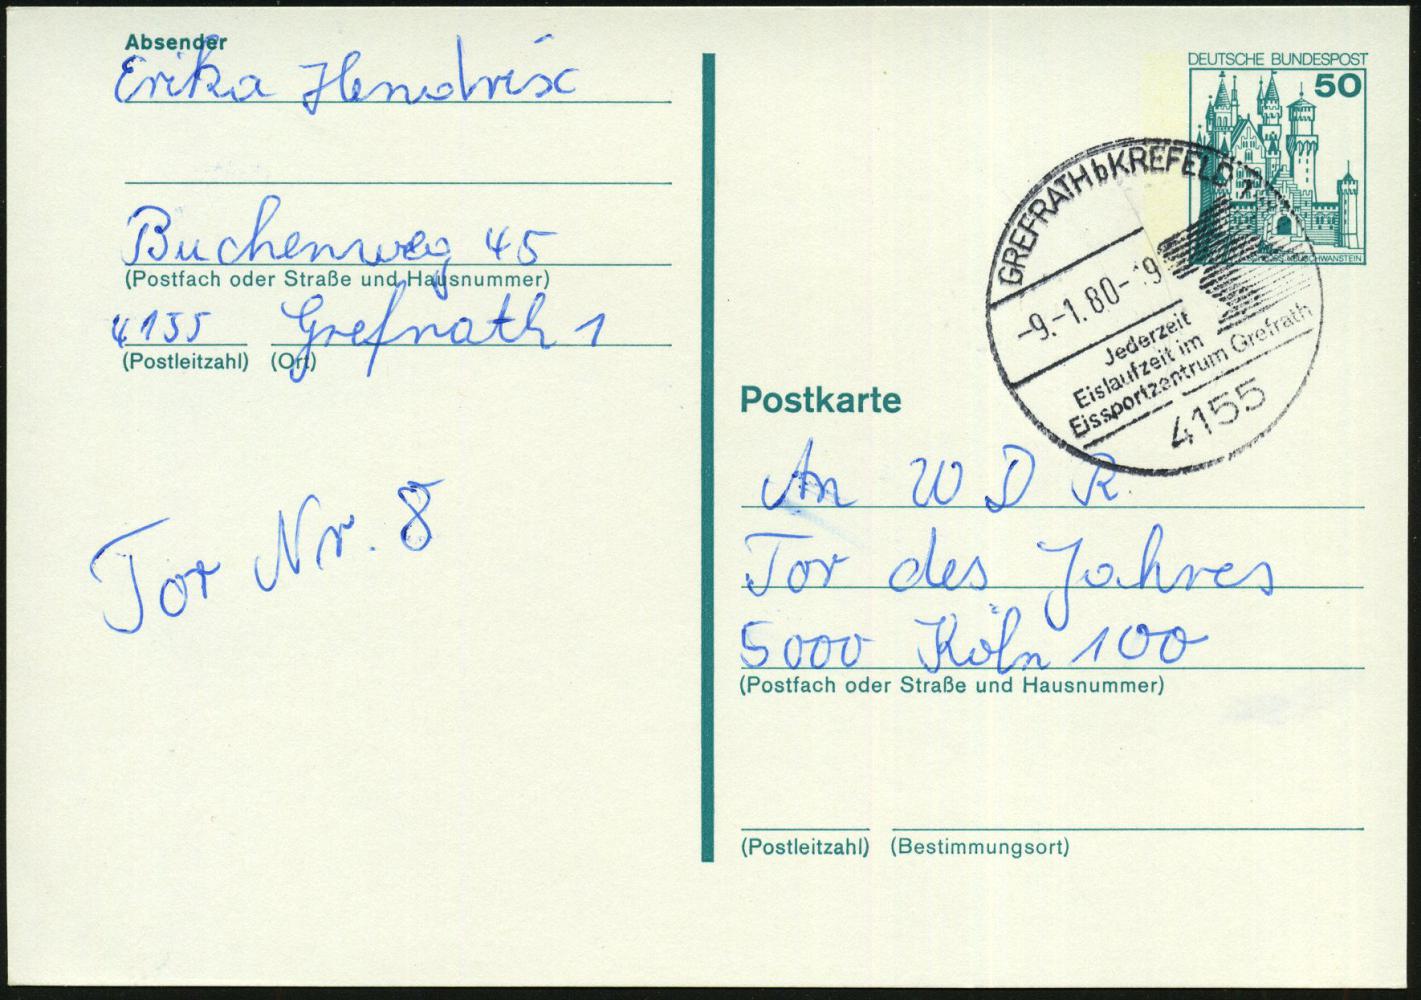 Absender
Erika Hendrix
Buchenweg 45
(Postfach oder Straße und Hausnummer)
4155 Grefrath 1
(Postleitzahl) (Ort)
Tor Nr. 8
DEUTSCHE BUNDESPOST
50
SCHLOSS NEUSCHWANSTEIN
GREFRATH b KREFELD 1
-9.-1.80-19
Jederzeit
Eislaufzeit im
Eissportzentrum Grefrath
4155
Postkarte
An W D R
Tor des Jahres
5000 Köln 100
(Postfach oder Straße und Hausnummer)
(Postleitzahl) (Bestimmungsort)